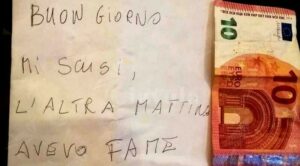 BUON GIORNO
Mi SCUSI,
L'ALTRA MATTINA
AVEVO FAME
10
10
EURO